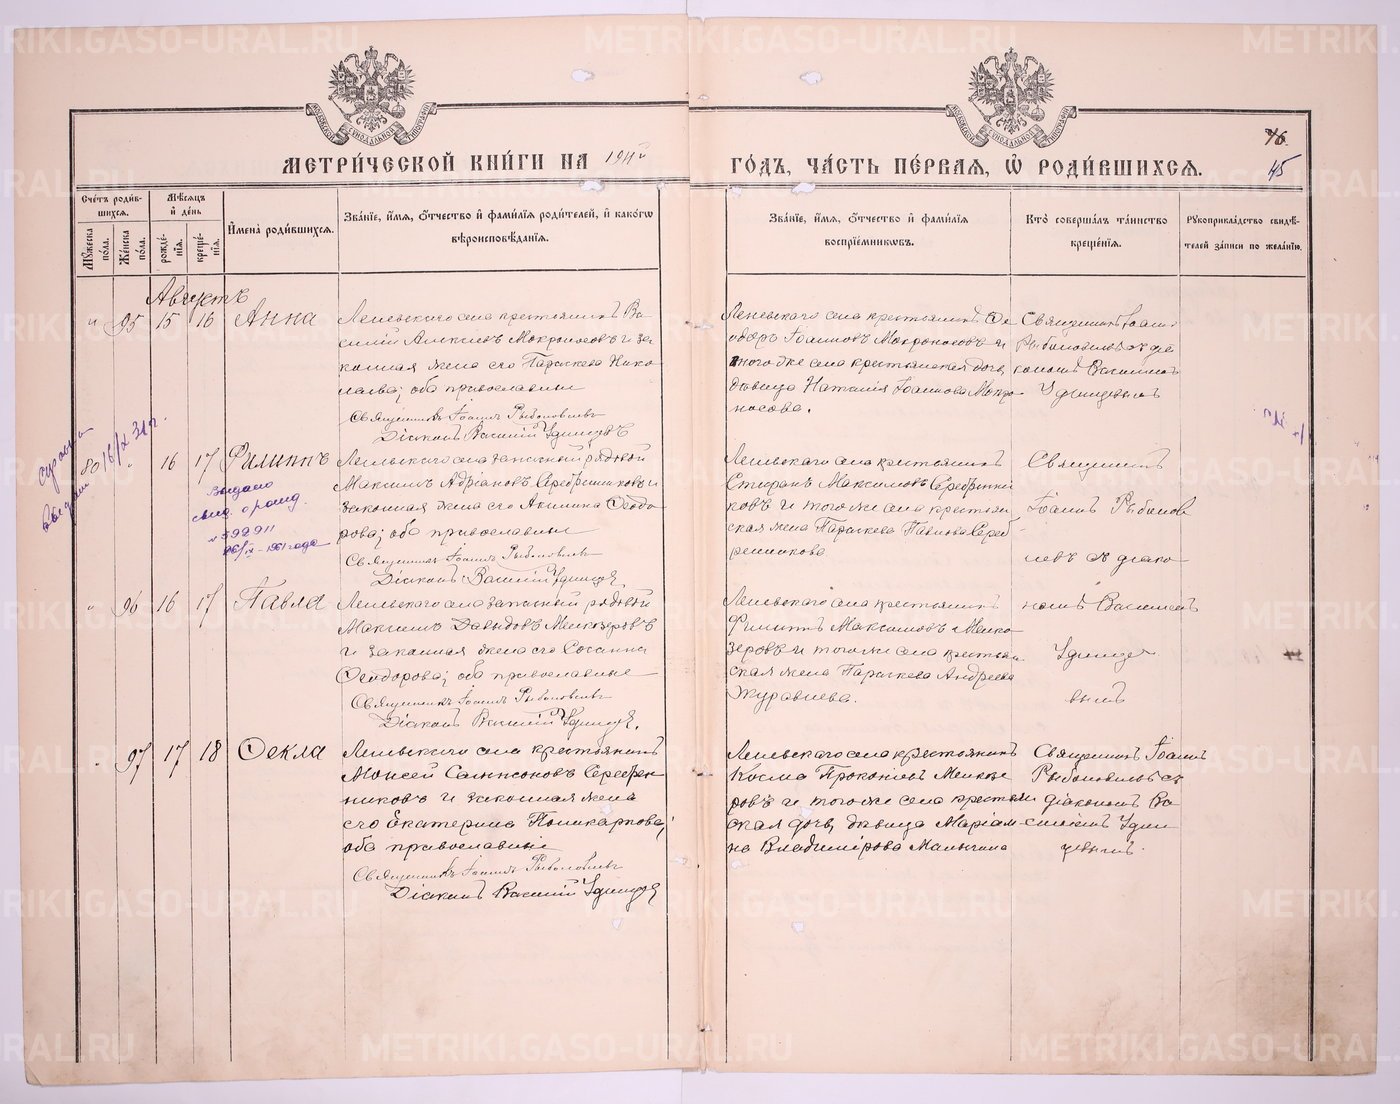 МЕТРИ́ЧЕСКОЙ КНИ́ГИ НА 1911й
ГО́ДЪ, ЧА́СТЬ ПЕ́РВАЯ, Ѽ РОДИ́ВШИХСЯ.
46.
45
Сче́тъ роди́в-
шихся.
Му́жеска по́ла.
Же́нска по́ла.
Мѣ́сяцъ
и҆ де́нь
рожде́-
нїя.
креще́-
нїя.
И҆мена̀ роди́вшихся.
Зва́нїе, и҆́мя, ѻ҆́тчество и҆ фами́лїя роди́телей, и҆ како́гѡ
вѣроисповѣ́данїя.
Зва́нїе, и҆́мя, ѻ҆́тчество и҆ фами́лїя
воспрїе́мниковъ.
Кто̀ соверша́лъ та́инство
креще́нїя.
Рукоприкла́дство свидѣ́-
телей за́писи по жела́нїю.
Августъ
" 95 15 16 Анна
Леневскаго села крестьянинъ Ва-
силий Алексѣевъ Мокроносовъ и за-
конная жена его Параскева Нико-
лаева; оба православные
Священникъ Іоаннъ Рыболовлевъ
Діаконъ Василій Удинцевъ
Леневскаго села крестьянинъ Ѳе-
одоръ Іоанновъ Мокроносовъ и
того же села крестьянская дочь
дѣвица Наталія Іоаннова Мокро-
носова.
Священникъ Іоаннъ
Рыболовлевъ съ діа-
кономъ Василіемъ
Удинцевымъ
80 " 16 17 Филиппъ
16/IX 31 г.
Выдано
свид. о рожд.
№ 592911
26/IX-1961 года
Леневскаго села запасный рядовой
Максимъ Адріановъ Серебренниковъ и
законная жена его Акилина Ѳеодо-
рова; оба православные
Священникъ Іоаннъ Рыболовлевъ
Діаконъ Василій Удинцев
Леневскаго села крестьянинъ
Стефанъ Максимовъ Серебренни-
ковъ и того же села крестьян-
ская жена Параскева Павлова Сереб-
ренникова
Священникъ
Іоаннъ Рыболов
левъ съ діако-
96 16 17 Павла
Леневскаго села запасный рядовой
Максимъ Давыдовъ Мелкозеровъ
и законная жена его Сосанна
Ѳеодорова; оба православные
Священникъ Іоаннъ Рыболовлевъ
Діаконъ Василій Удинцев.
Леневскаго села крестьянинъ
Филиппъ Максимовъ Мелко-
зеровъ и того же села крестьян-
ская жена Параскева Андреева
Журавлева.
номъ Василіемъ
Удинце
вымъ
97 17 18 Ѳекла
Леневскаго села крестьянинъ
Моисей Сампсоновъ Серебрен-
никовъ и законная жена
его Екатерина Поликарпова;
оба православные
Священникъ Іоаннъ Рыболовлевъ
Діаконъ Василій Удинцев
Леневскаго села крестьянинъ
Косма Прокопіевъ Мелкозе-
ровъ и того же села крестьян-
ская дочь, дѣвица Маріам-
на Владимірова Малыгина
Священникъ Іоаннъ
Рыболовлевъ съ
діакономъ Ва-
силіемъ Удин
цевымъ.
METRIKI.GASO-URAL.RU